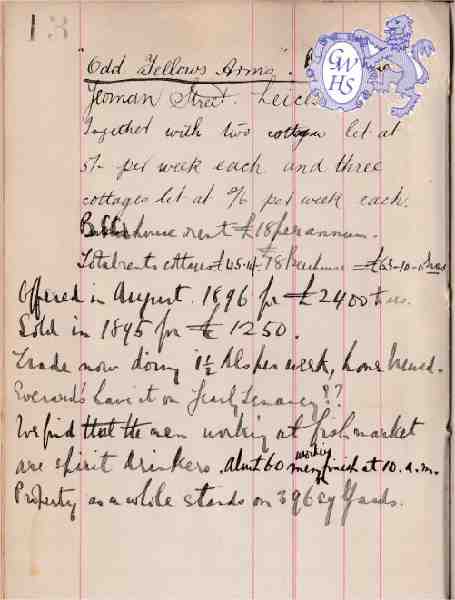 13
GWHS
"Odd Fellows Arms".
Yeoman Street. Leices
Together with two cottages let at
5/- per week each and three
cottages let at 2/6 per week each.
house rent £18 per annum.
Total rents cottages £45-10 £18 Beerhouse = £63-10-0
Offered in August. 1896 for £2400
Sold in 1895 for £1250.
Trade now doing 1½ bls per week, home brewed.
Everard's have it on Yearly Tenancy??
We find that the men working at fish market
are spirit drinkers. about 60 working men finish at 10. a.m.
Property as a whole stands on 396 sq Yards.